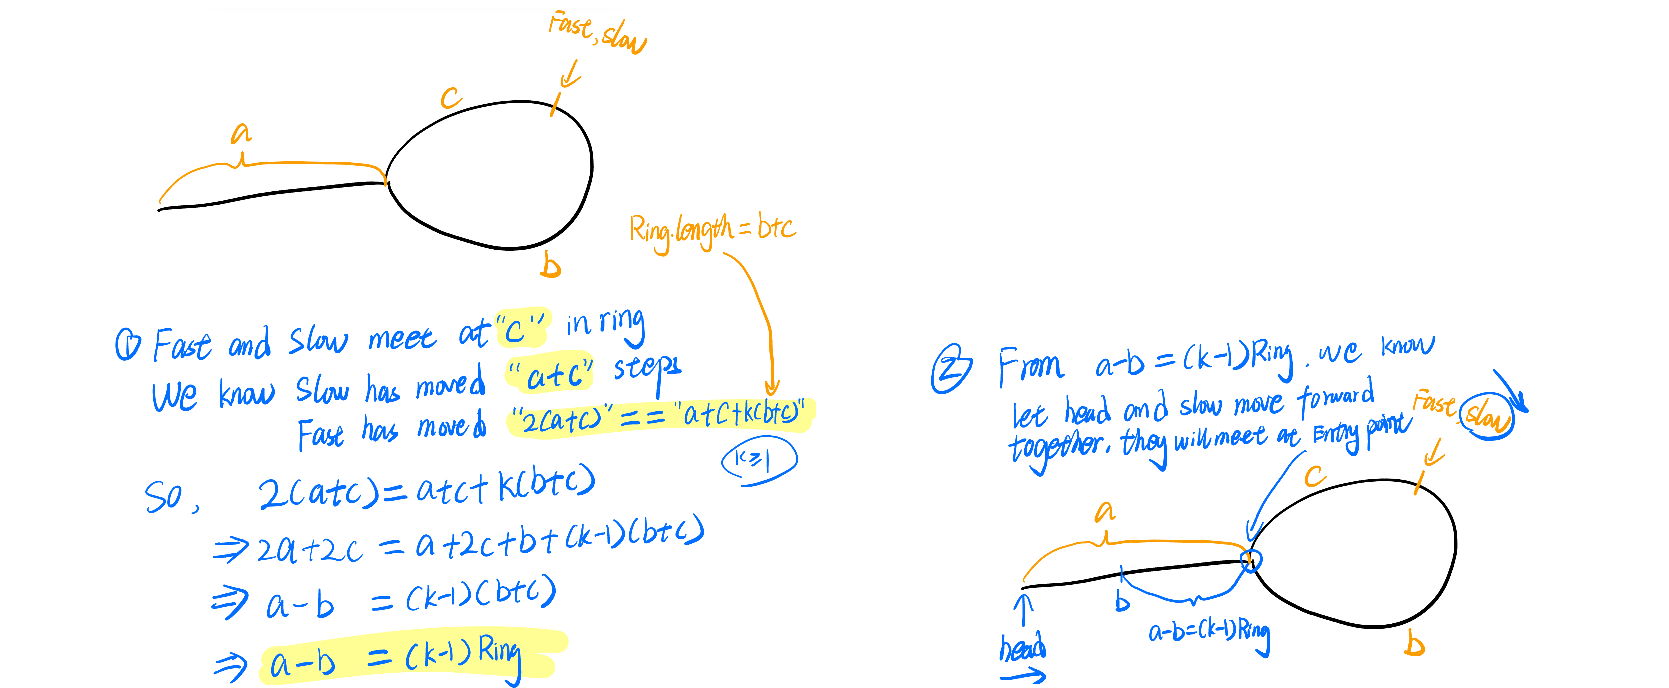 Fast, slow
c
a
Ring.length = b+c
b
① Fast and Slow meet at "c" in ring
We know Slow has moved "a+c" steps
Fast has moved "2(a+c)" == "a+c+k(b+c)"
k≥1
So, 2(a+c) = a+c+k(b+c)
⇒ 2a+2c = a+2c+b+(k-1)(b+c)
⇒ a-b = (k-1)(b+c)
⇒ a-b = (k-1) Ring
② From a-b = (k-1)Ring. we know
let head and slow move forward
together. they will meet at Entry point
Fast, slow
c
a
b
a-b=(k-1)Ring
head
b